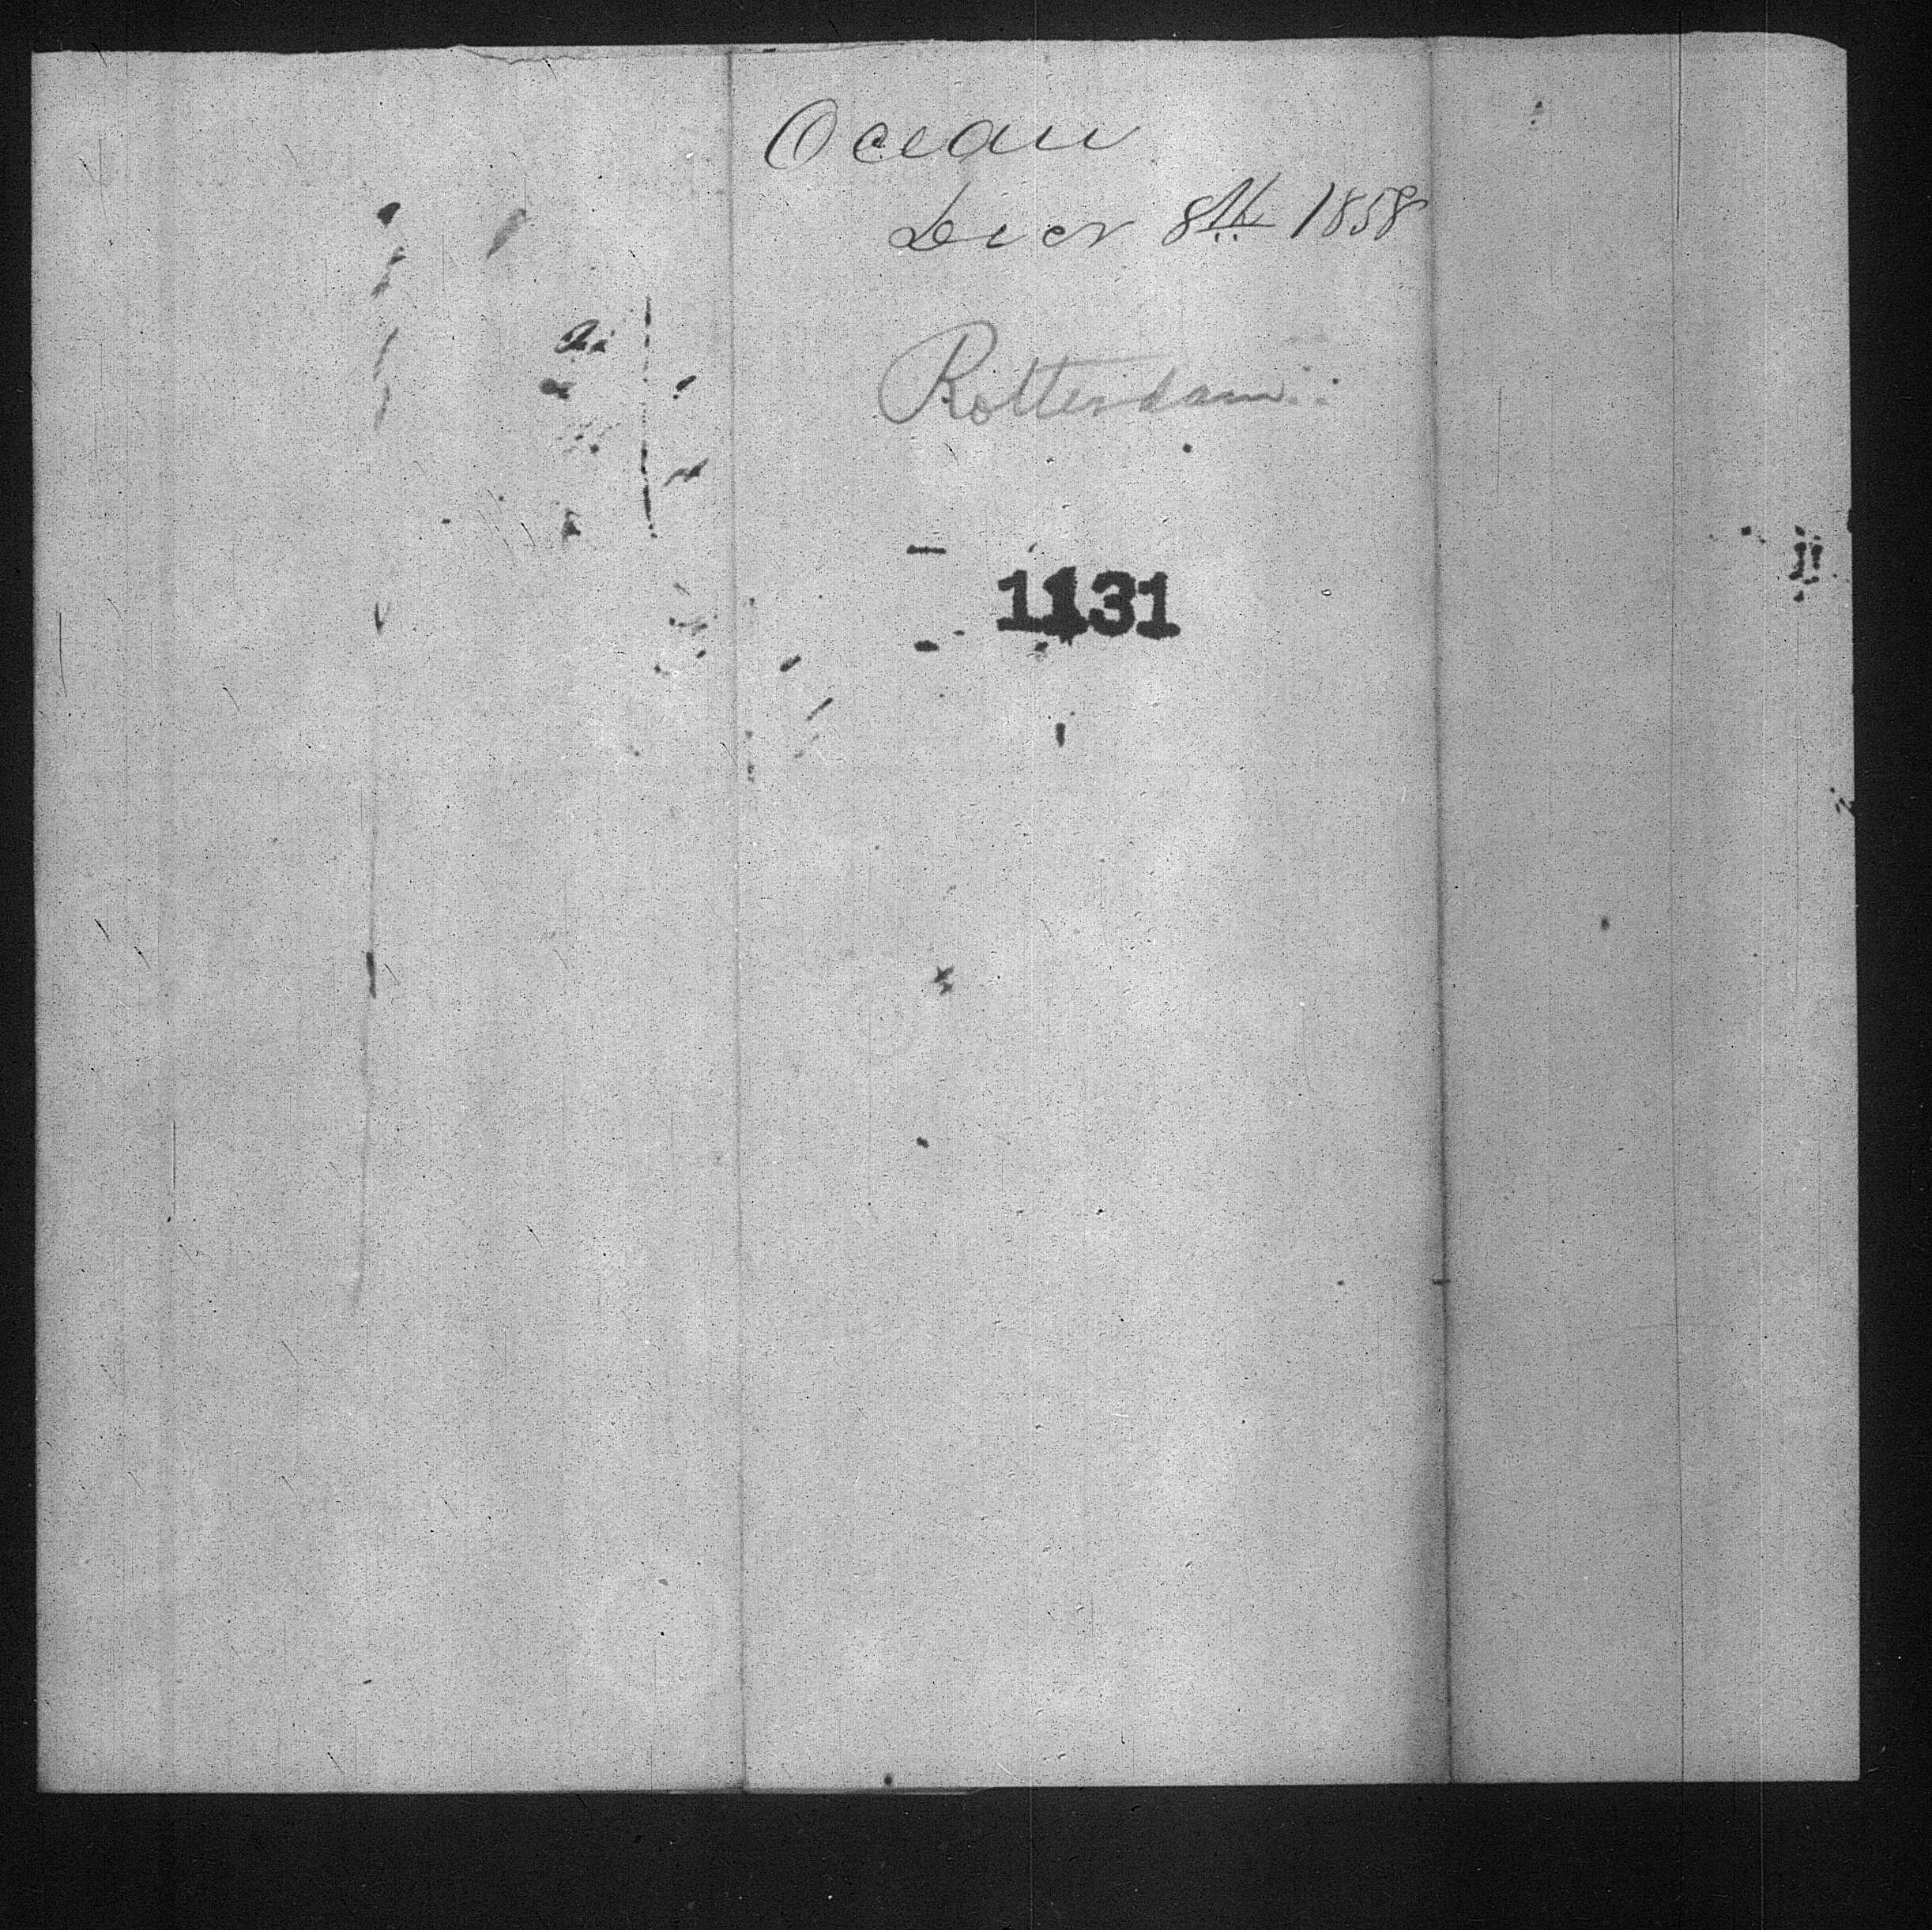 Ocean
Decr 8th 1858
Rotterdam
1131